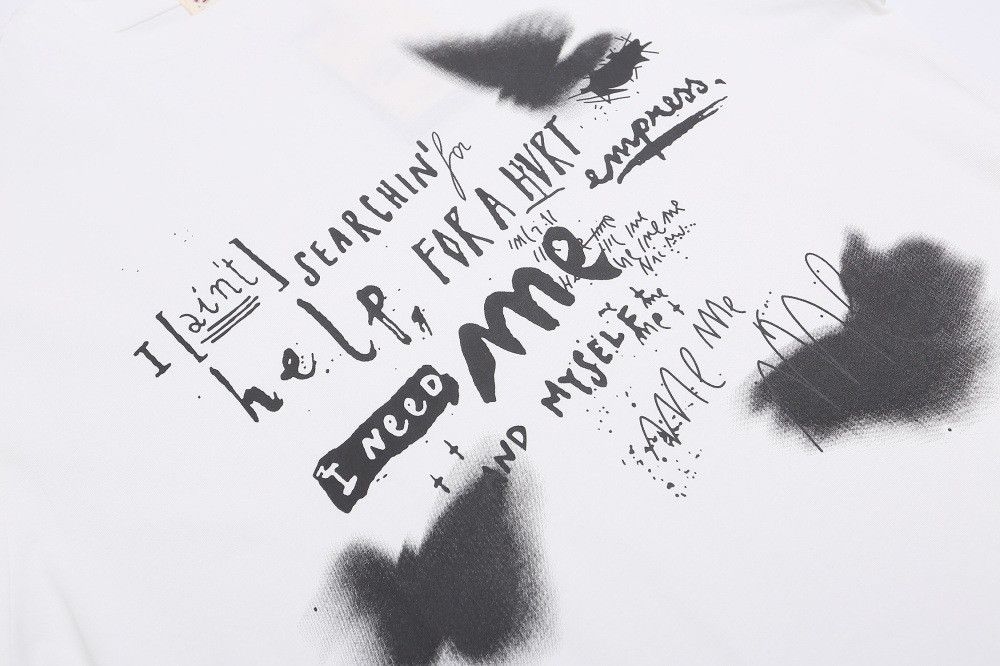 I [ain't] SEARCHIN' for
heLP, FOR A HVRT empress.
I NeeD me
AND MYSELF me
me
me